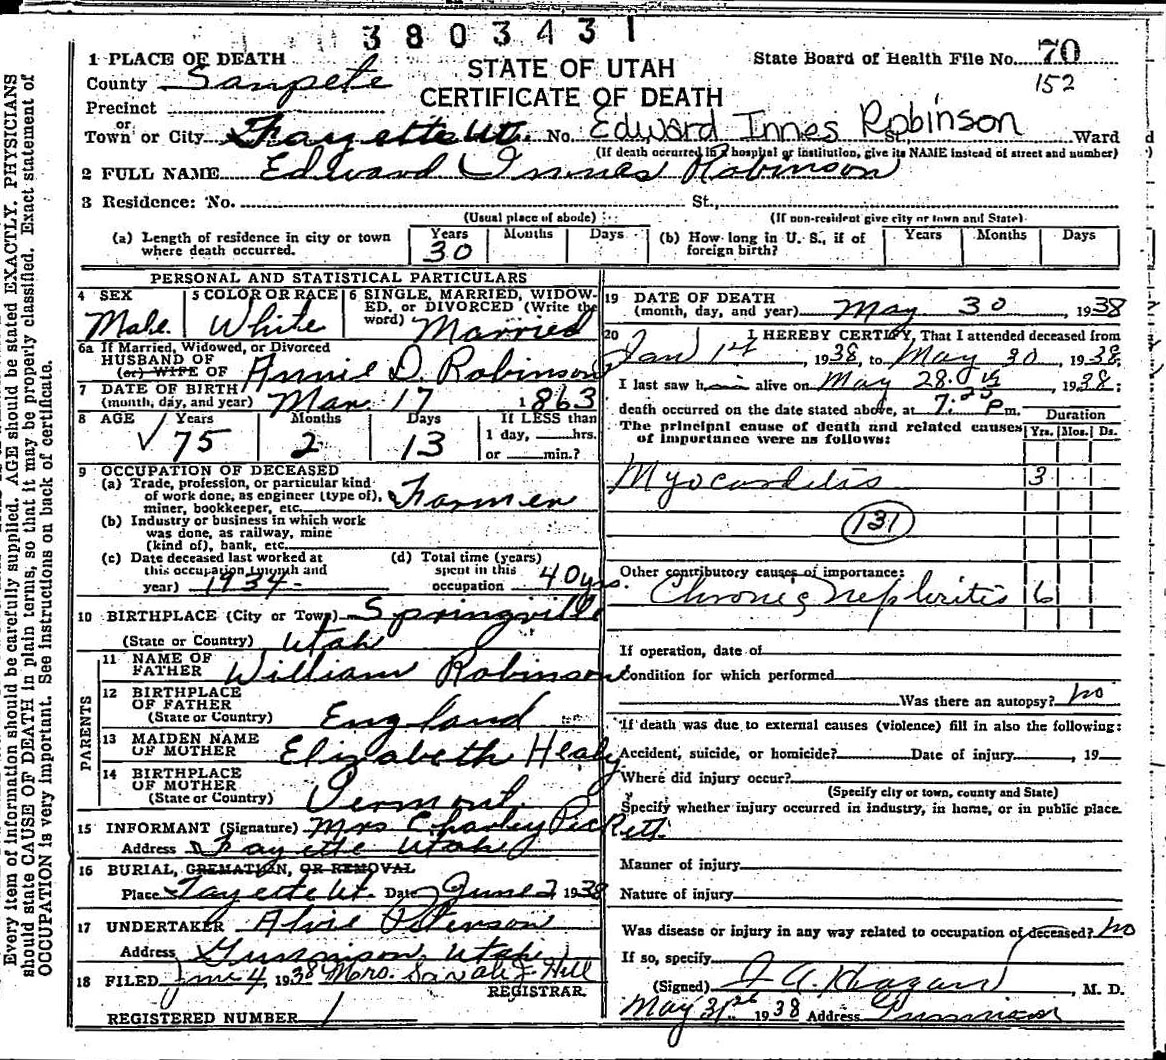 3803431
1 PLACE OF DEATH
STATE OF UTAH
State Board of Health File No. 70
County Sanpete
152
Precinct
CERTIFICATE OF DEATH
or
Town or City Fayette Ut. No. Edward Innes Robinson St., Ward
(If death occurred in a hospital or institution, give its NAME instead of street and number)
2 FULL NAME Edward Innes Robinson
3 Residence: No. St.,
(Usual place of abode) (If non-resident give city or town and State)
(a) Length of residence in city or town where death occurred. Years 30 Months Days
(b) How long in U. S., if of foreign birth? Years Months Days
PERSONAL AND STATISTICAL PARTICULARS
4 SEX Male
5 COLOR OR RACE White
6 SINGLE, MARRIED, WIDOW-
ED, or DIVORCED (Write the
word) Married
6a If Married, Widowed, or Divorced
HUSBAND OF
(or) WIFE OF Annie D. Robinson
7 DATE OF BIRTH
(month, day, and year) Mar 17 1863
8 AGE Years Months Days If LESS than
75 2 13 1 day, hrs.
or min.?
9 OCCUPATION OF DECEASED
(a) Trade, profession, or particular kind
of work done, as engineer (type of),
miner, bookkeeper, etc. Farmer
(b) Industry or business in which work
was done, as railway, mine
(kind of), bank, etc.
(c) Date deceased last worked at
this occupation (month and
year) 1934
(d) Total time (years)
spent in this
occupation 40 yrs.
10 BIRTHPLACE (City or Town) Springville
(State or Country) Utah
PARENTS
11 NAME OF
FATHER William Robinson
12 BIRTHPLACE
OF FATHER
(State or Country) England
13 MAIDEN NAME
OF MOTHER Elizabeth Healy
14 BIRTHPLACE
OF MOTHER
(State or Country) Vermont
15 INFORMANT (Signature) Mrs Charley Pickett
Address Fayette Utah
16 BURIAL, CREMATION, OR REMOVAL
Place Fayette Ut. Date June 2 1938
17 UNDERTAKER Alvie Peterson
Address Gunnison, Utah
18 FILED June 4, 1938 Mrs. Sarah J. Hill
REGISTRAR.
REGISTERED NUMBER 1
19 DATE OF DEATH
(month, day, and year) May 30, 1938
20 I HEREBY CERTIFY, That I attended deceased from
Jan 14, 1938, to May 30, 1938.
I last saw him alive on May 28, 1938;
death occurred on the date stated above, at 7. P m.
Duration
The principal cause of death and related causes
of importance were as follows: Yrs. Mos. Ds.
Myocarditis 3
131
Other contributory causes of importance:
Chronic Nephritis 6
If operation, date of
Condition for which performed
Was there an autopsy? no
If death was due to external causes (violence) fill in also the following:
Accident, suicide, or homicide? Date of injury , 19
Where did injury occur?
(Specify city or town, county and State)
Specify whether injury occurred in industry, in home, or in public place.
Manner of injury
Nature of injury
Was disease or injury in any way related to occupation of deceased? no
If so, specify
(Signed) J A Hagan, M. D.
May 31st 1938 Address Gunnison
Every item of information should be carefully supplied. AGE should be stated EXACTLY. PHYSICIANS
should state CAUSE OF DEATH in plain terms, so that it may be properly classified. Exact statement of
OCCUPATION is very important. See instructions on back of certificate.